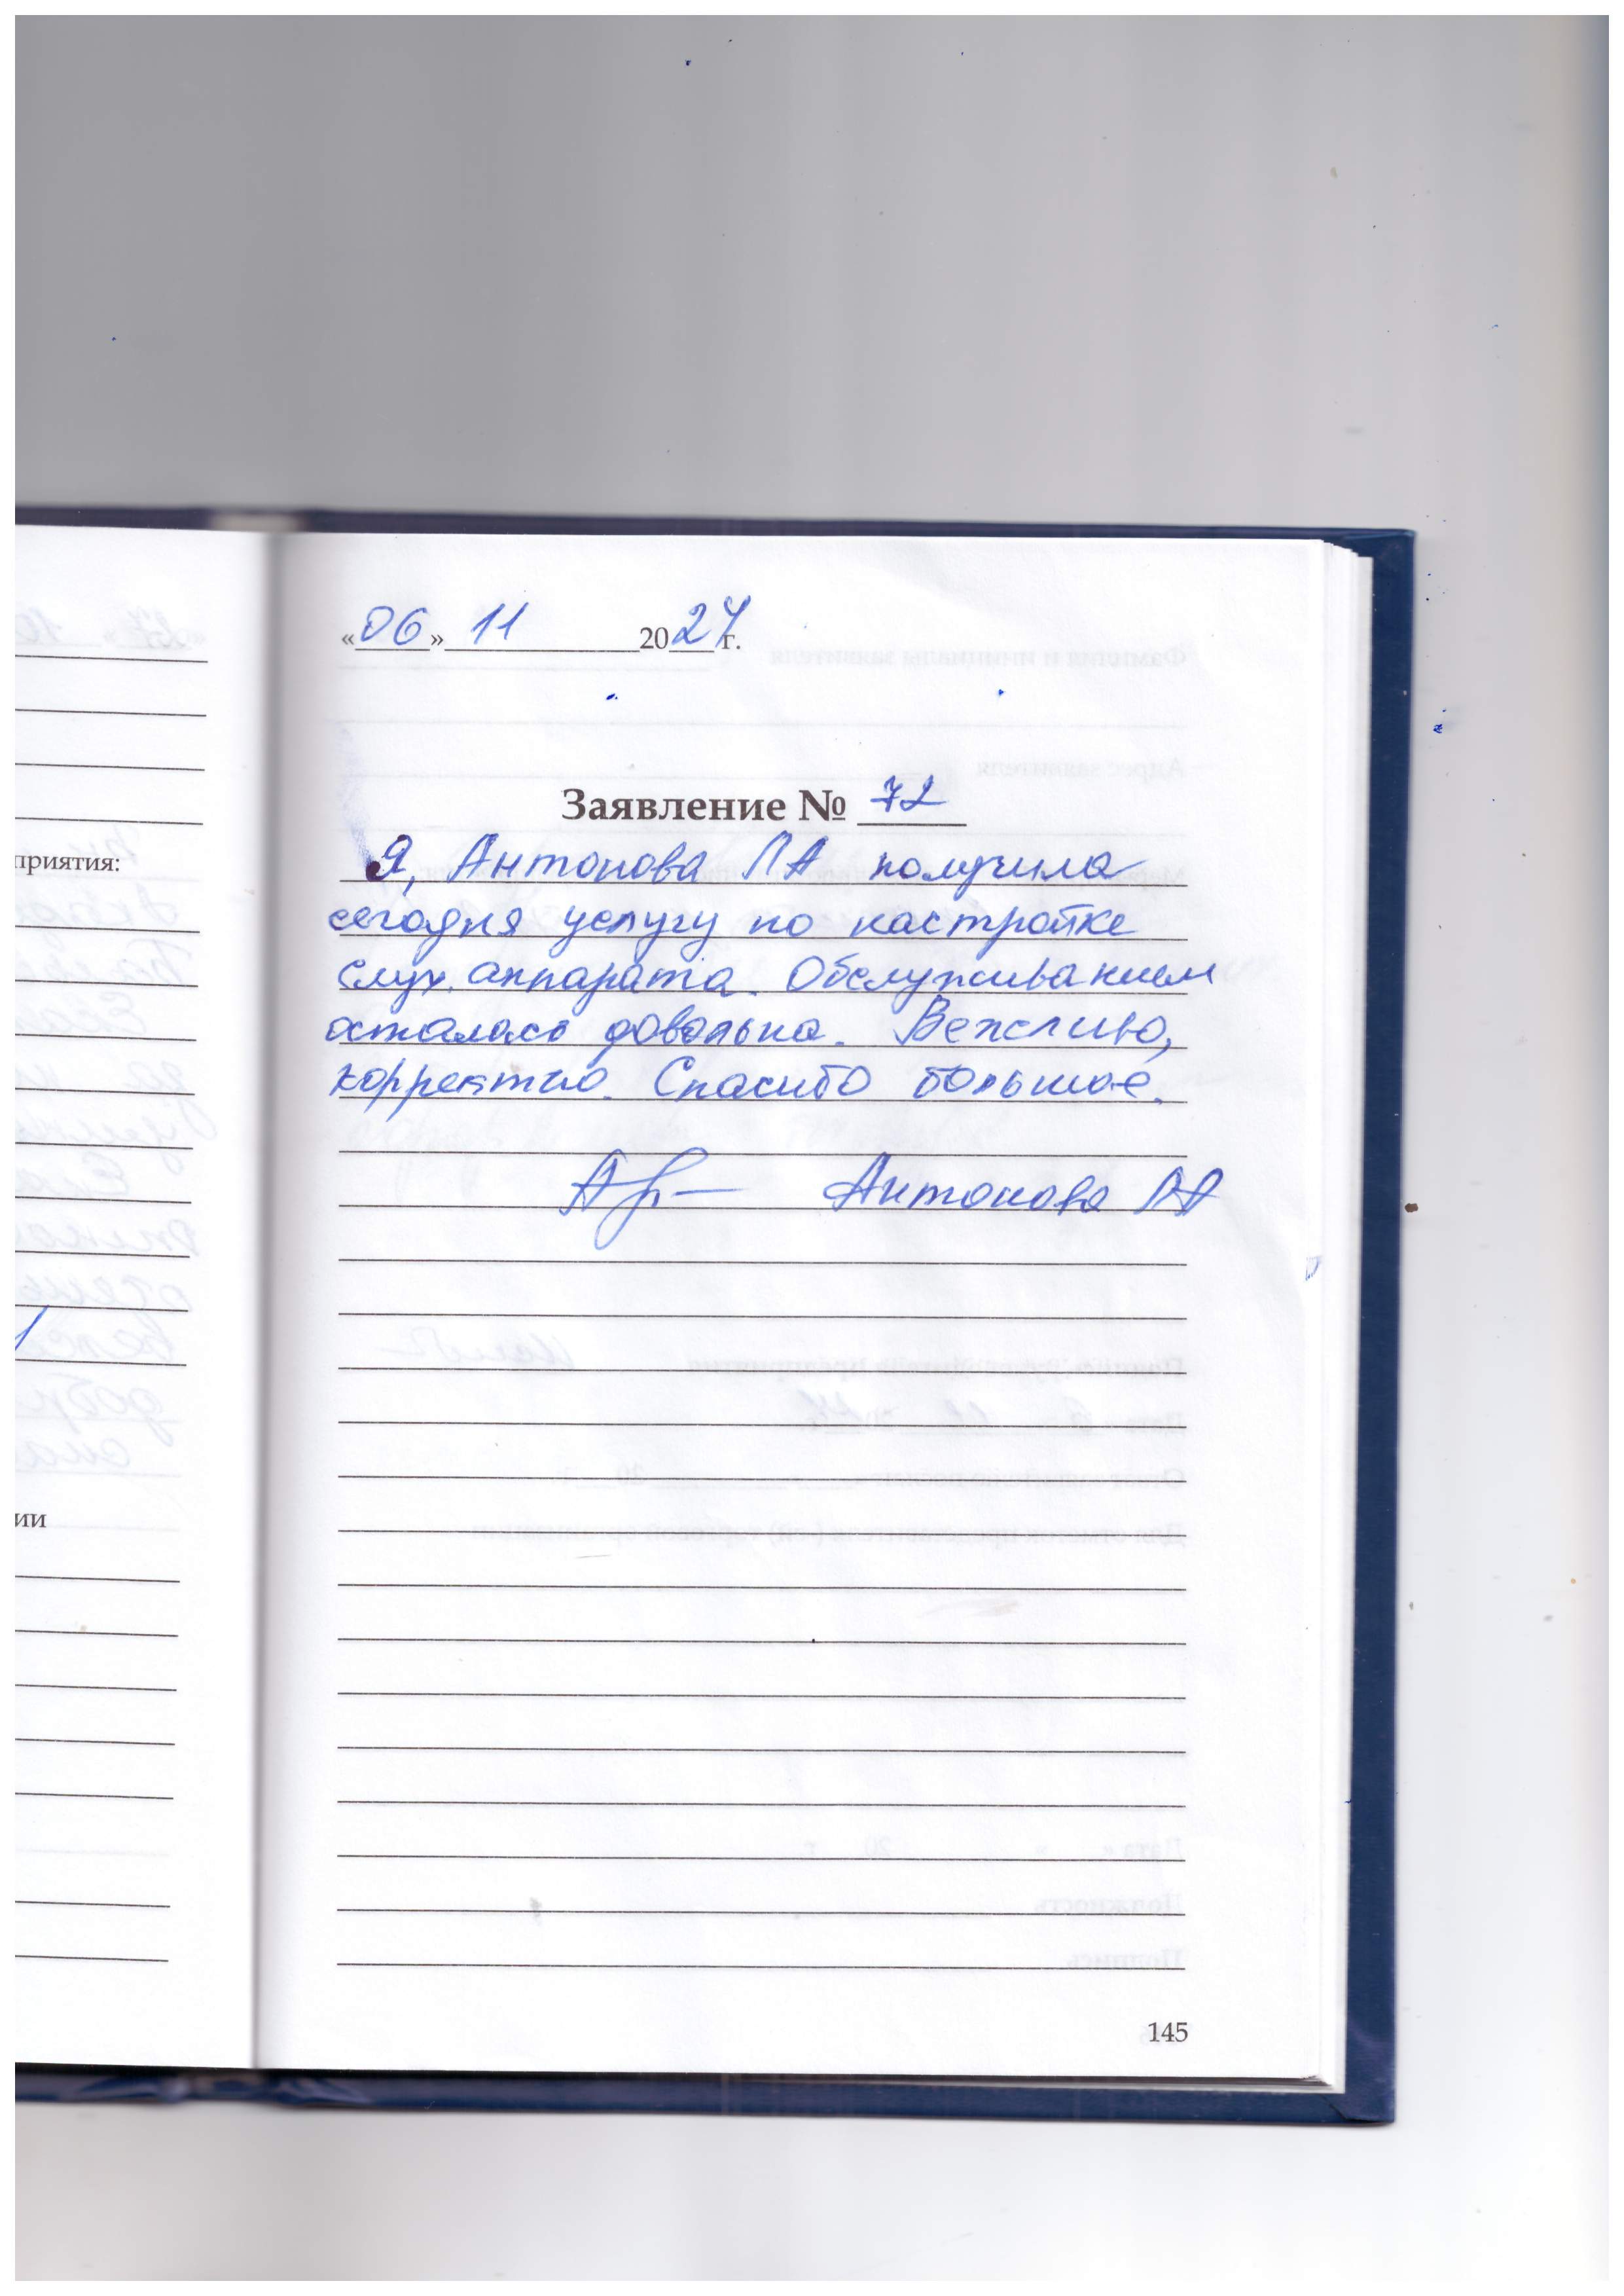 «06» 11 2024 г.
Заявление № 72
Я, Антонова ЛА получила
сегодня услугу по настройке
слух. аппарата. Обслуживанием
осталась довольна. Вежливо,
корректно. Спасибо большое.
Антонова ЛА
145
приятия:
ии